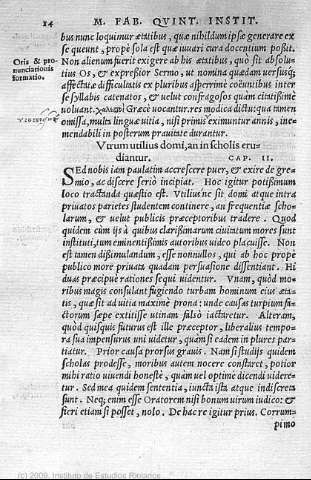 14 M. FAB. QVINT. INSTIT.
bus nunc loquimur ætatibus, quæ nihildum ipsæ generare ex
se queunt, propè sola est quæ iuuari cura docentium possit.
Oris & pro
nunciationis
formatio.
Non alienum fuerit exigere ab his ætatibus, quò sit absolu-
tius Os, & expreßior Sermo, ut nomina quædam uersusq;
affectatæ difficultatis ex pluribus asperrimè coëuntibus inter
se syllabis catenatos, & uelut confragosos quàm citatißimè
uoluant. Græcè uocantur. res modica dictu: qua tamen
omissa, multa linguæ uitia, nisi primis eximuntur annis, ine-
mendabili in posterum prauitate durantur.
Vtrum utilius domi, an in scholis eru-
diantur. CAP. II.
SEd nobis iam paulatim accrescere puer, & exire de gre-
mio, ac discere seriò incipiat. Hoc igitur potißimum
loco tractanda quæstio est. Vtiliusne sit domi atque intra
priuatos parietes studentem continere, an frequentiæ schola-
rum, & uelut publicis præceptoribus tradere. Quod
quidem cùm ijs à quibus clarißimarum ciuitatum mores sunt
instituti, tum eminentißimis autoribus video placuisse. Non
est tamen dißimulandum, esse nonnullos, qui ab hoc propè
publico more priuata quadam persuasione dissentiant. Hi
duas præcipuè rationes sequi uidentur. Vnam, quòd mo-
ribus magis consulant fugiendo turbam hominum eius æta-
tis, quæ sit ad uitia maximè prona: unde causas turpium fa-
ctorum sæpe extitisse utinam falsò iactaretur. Alteram,
quòd quisquis futurus est ille præceptor, liberalius tempo-
ra sua impensurus uni uidetur, quàm si eadem in plures par-
tiatur. Prior causa prorsus grauis. Nam si studijs quidem
scholas prodesse, moribus autem nocere constaret, potior
mihi ratio uiuendi honestè, quàm uel optimè dicendi uidere-
tur. Sed mea quidem sententia, iuncta ista atque indiscreta
sunt. Neq; enim esse Oratorem nisi bonum uirum iudico: &
fieri etiam si posset, nolo. De hac re igitur prius. Corrum-
pi mo
(c) 2009, Instituto de Estudios Riojanos